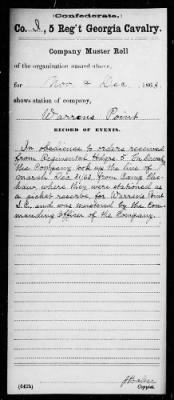 (Confederate.)
Co. I, 5 Reg't Georgia Cavalry.
Company Muster Roll
of the organization named above,
for Nov & Dec, 1863.
shows station of company,
Warrens Point
RECORD OF EVENTS.
In obedience to orders received
from Regimental Hdqrs 5 Ga Cavalry
the Company took up the line of
march Dec 31/63 from Camp
where they were stationed as
a picket reserve for Warrens Point
S.C., and was mustered by the Com-
manding Officer of the Company.
(642b)
Copyist.